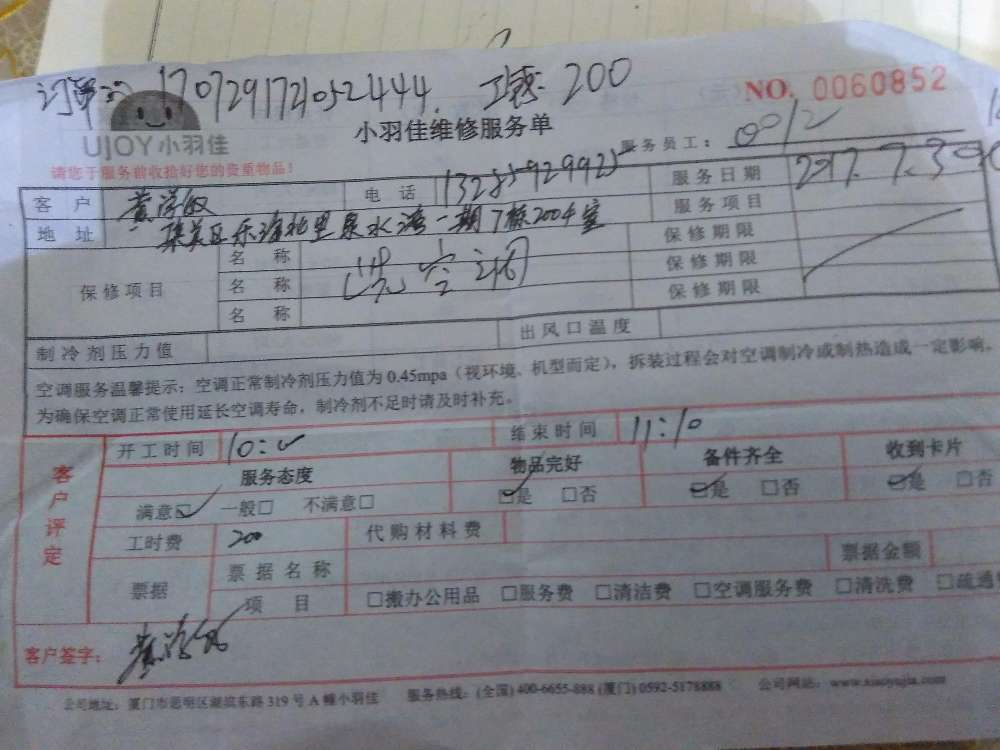 170729172052444. 200
NO. 0060852
UJOY小羽佳
小羽佳维修服务单
服务员工: 0012
请您于服务前收拾好您的贵重物品!
客 户 黄 电 话 服务日期 2017.7.30
地 址 集美区乐海北里泉水湾一期7栋2004室 服务项目
保修项目 名 称 保修期限
名 称 洗空调 保修期限
名 称 保修期限
制冷剂压力值 出风口温度
空调服务温馨提示: 空调正常制冷剂压力值为 0.45mpa (视环境、机型而定), 拆装过程会对空调制冷或制热造成一定影响,
为确保空调正常使用延长空调寿命, 制冷剂不足时请及时补充。
客户评定
开工时间 10: 结束时间 11:10
服务态度 物品完好 备件齐全 收到卡片
满意☑ 一般□ 不满意□ ☑是 □否 ☑是 □否 ☑是 □否
工时费 200 代购材料费
票据 票据名称 票据金额
项 目 □搬办公用品 □服务费 □清洁费 □空调服务费 □清洗费 □疏通
客户签字: 黄
公司地址: 厦门市思明区湖滨东路 319 号 A 幢小羽佳 服务热线: (全国) 400-6655-888 (厦门) 0592-5178888 公司网站: www.xiaoyujia.com